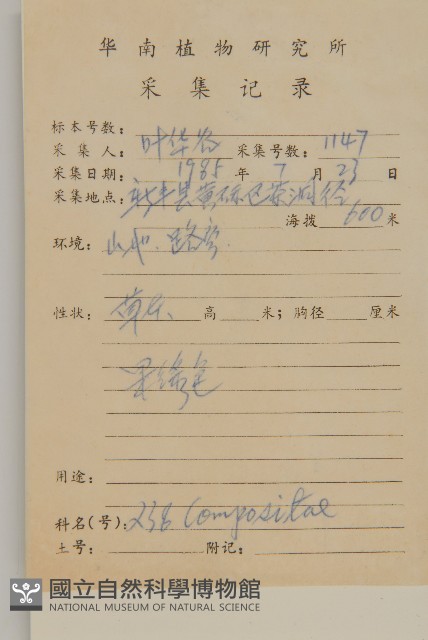 华南植物研究所
采集记录
标本号数:
采集人: 叶华谷 采集号数: 1147
采集日期: 1985 年 7 月 23 日
采集地点: 新丰县黄磜区茶洞
海拨 600 米
环境: 山地. 路旁.
性状: 草本、 高 米; 胸径 厘米
果绿色
用途:
科名(号): 238 Compositae
土号: 附记:
國立自然科學博物館
NATIONAL MUSEUM OF NATURAL SCIENCE